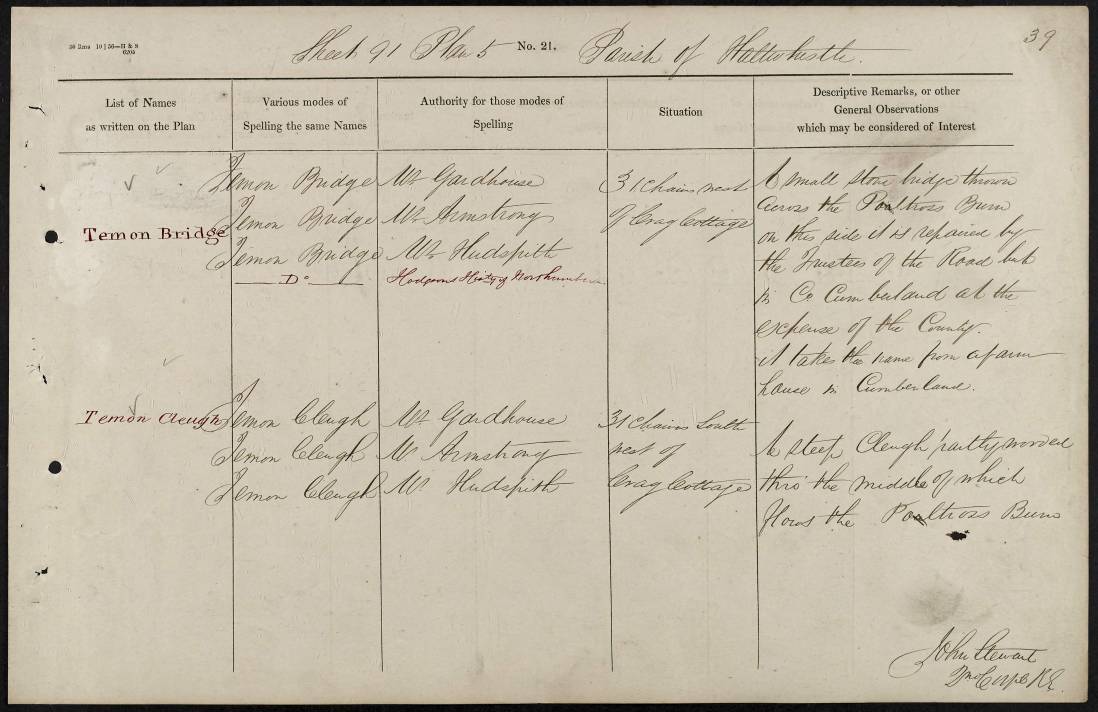 39
36 2ms 10 | 56—H & S
6205
Sheet 91 Plan 5 No. 21. Parish of Haltwhistle.
List of Names
as written on the Plan
Various modes of
Spelling the same Names
Authority for those modes of
Spelling
Situation
Descriptive Remarks, or other
General Observations
which may be considered of Interest
Temon Bridge
Temon Bridge
Temon Bridge
Temon Bridge
Do
Mr Gardhouse
Mr Armstrong
Mr Hudspith
Hodgsons Histy of Northumberln
31 Chains west
of Crag Cottage
A small stone bridge thrown
across the Poaltross Burn
on this side it is repaired by
the Trustees of the Road but
in Co Cumberland at the
expense of the County.
it takes the name from a farm
house in Cumberland.
Temon Cleugh
Temon Cleugh
Temon Cleugh
Temon Cleugh
Mr Gardhouse
Mr Armstrong
Mr Hudspith
31 Chains South
west of
Crag Cottage
A steep Cleugh partly wooded
thro' the middle of which
flows the Poaltross Burn
John Stewart
2nd Corpl R.E.